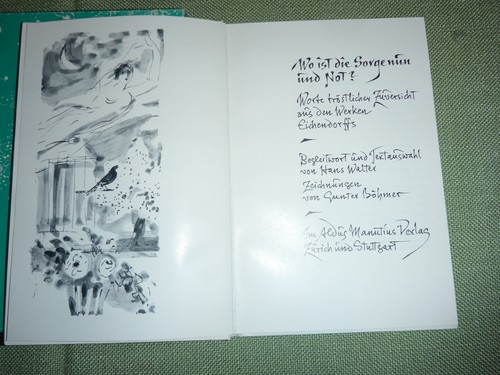 Wo ist die Sorge nun
und Not?
Worte tröstlicher Zuversicht
aus den Werken
Eichendorffs
Begleitwort und Textauswahl
von Hans Walter
Zeichnungen
von Gunter Böhmer
Im Aldus Manutius Verlag
Zürich und Stuttgart